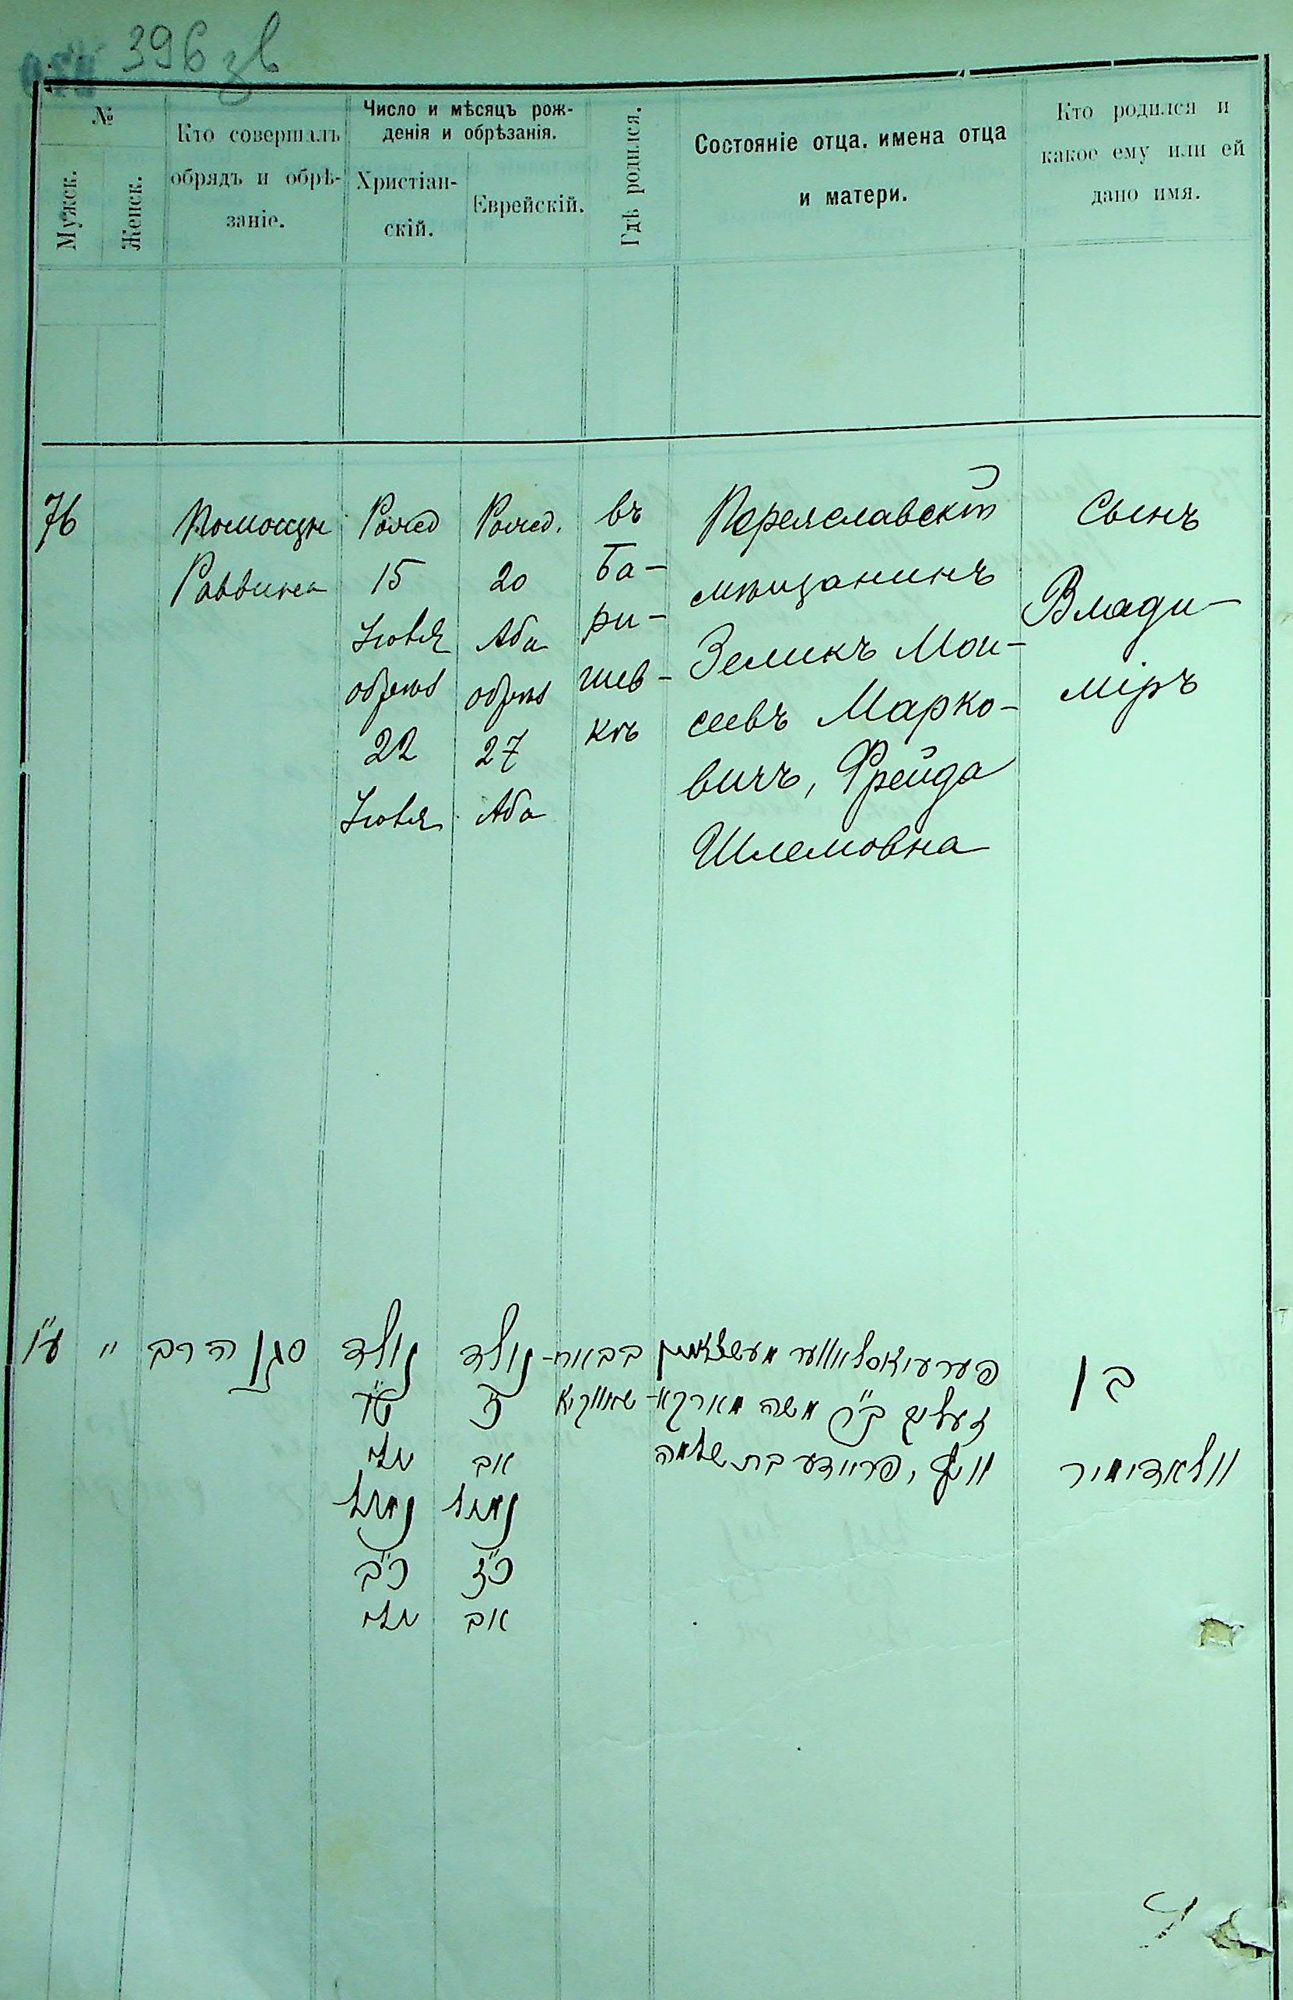 396 зв
№
Мужск.
Женск.
Кто совершалъ
обрядъ и обрѣ-
заніе.
Число и мѣсяцъ рож-
денія и обрѣзанія.
Христіан-
скій.
Еврейскій.
Гдѣ родился.
Состояніе отца, имена отца
и матери.
Кто родился и
какое ему или ей
дано имя.
76
Помощн
Раввина
Рожд
15
Іюля
обрѣз
22
Іюля
Рожд.
20
Аба
обрѣз
27
Аба
въ
Ба-
ри-
шев-
кѣ
Переяславскій
мѣщанинъ
Зеликъ Мои-
сеевъ Марко-
вичъ, Фрейда
Шлемовна
Сынъ
Влади-
міръ
ע"ו
"
סגן הרב
נולד
ט"ו
יולי
נמול
כ"ב
יולי
נולד
אב
נמול
כ"ז
אב
בבאר-
שאווקא
פערעיאסלאווער
זעליג ב"ר משה מארקא-
וויץ, פריידע בת שלמה
בן
וולאדימיר